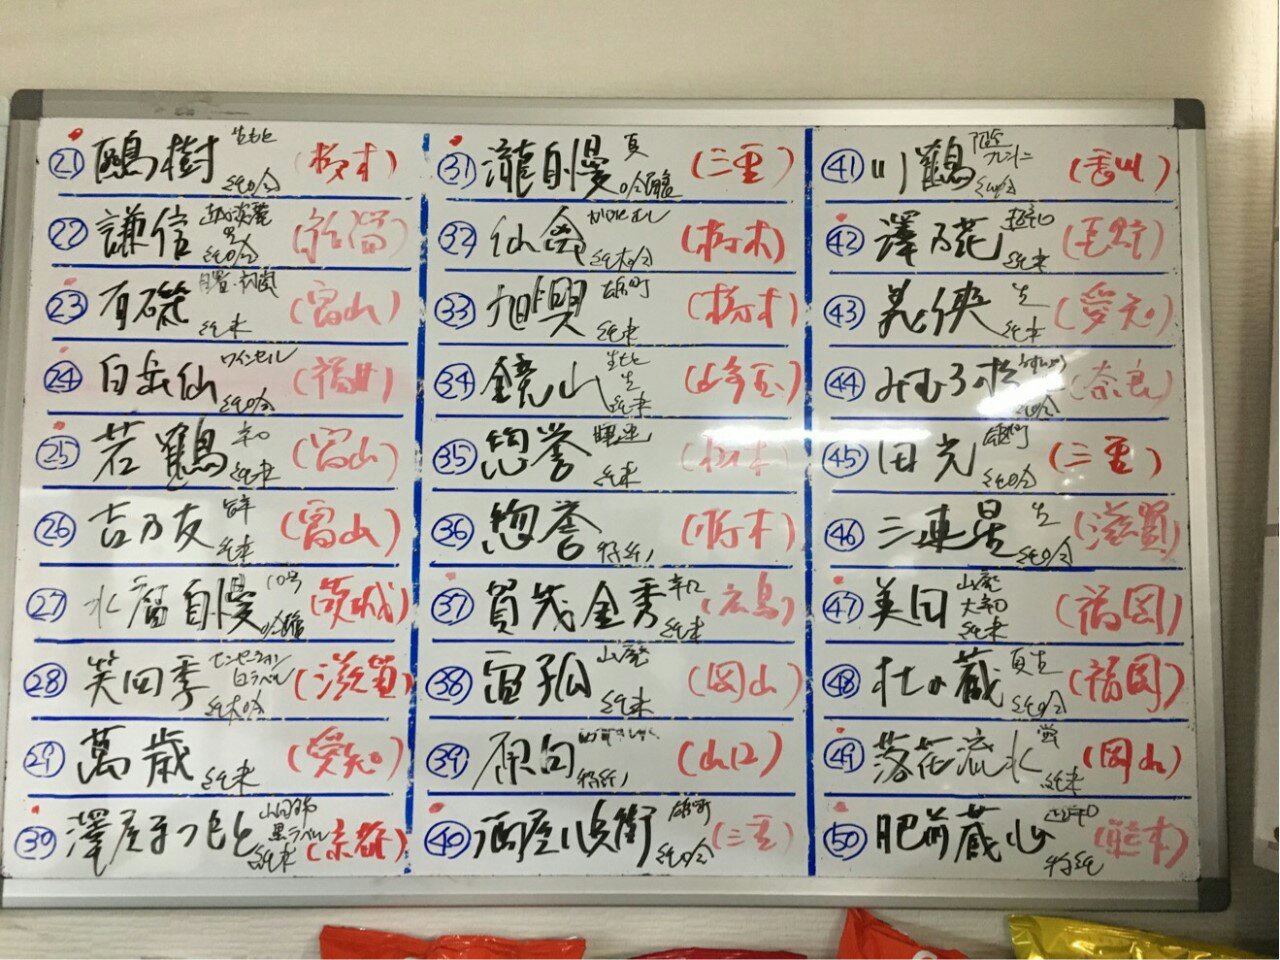 21 鷗樹 生もと 純吟 (栃木)
22 謙信 純吟 (新潟)
23 有磯 純米 (富山)
24 白岳仙 ワインセル 純吟 (福井)
25 若鶴 辛口 純米 (富山)
26 吉乃友 純米 (富山)
27 水府自慢 10号 (茨城)
28 笑四季 センセーション 白ラベル 純大吟 (滋賀)
29 萬歳 純米 (愛知)
30 澤屋まつもと 黒ラベル 純米 (京都)
31 瀧自慢 (三重)
32 仙禽 純大吟 (栃木)
33 旭興 雄町 純米 (栃木)
34 鏡山 生もと 生 純米 (埼玉)
35 惣誉 純米 (栃木)
36 惣誉 特純 (栃木)
37 賀茂金秀 辛口 純米 (広島)
38 山廃 純米 (岡山)
39 原田 特純 (山口)
40 酒屋八兵衛 雄町 純吟 (三重)
41 川鶴 純吟 (香川)
42 澤乃花 超辛口 純米 (長野)
43 義侠 生 純米 (愛知)
44 みむろ杉 純吟 (奈良)
45 田光 雄町 純吟 (三重)
46 三連星 生 純吟 (滋賀)
47 美田 山廃 大辛口 純米 (福岡)
48 杜の蔵 純吟 (福岡)
49 落花流水 純米 (岡山)
50 肥前蔵心 特純 (熊本)